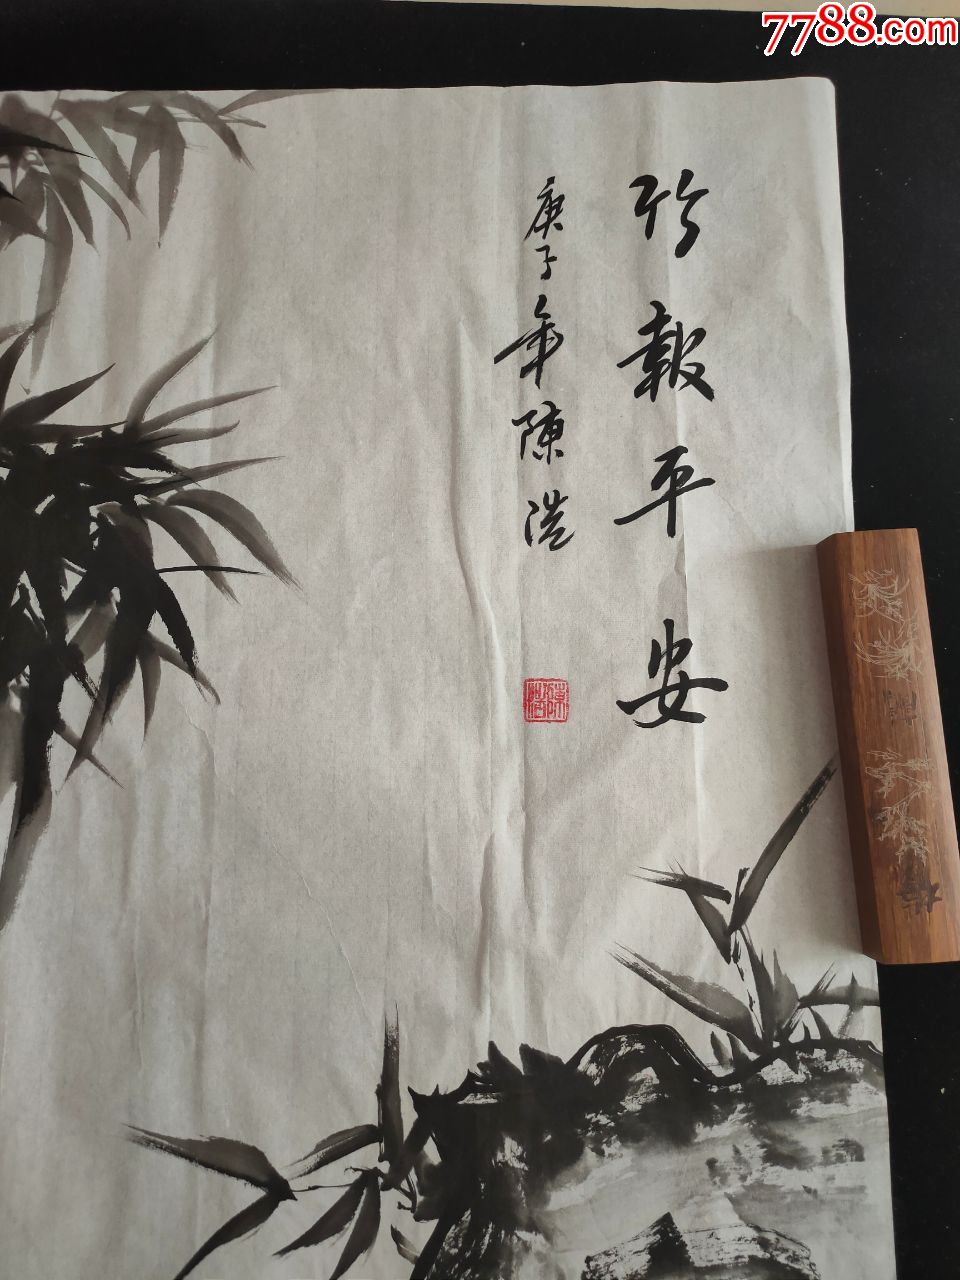 7788.com
竹報平安
庚子年陳浩